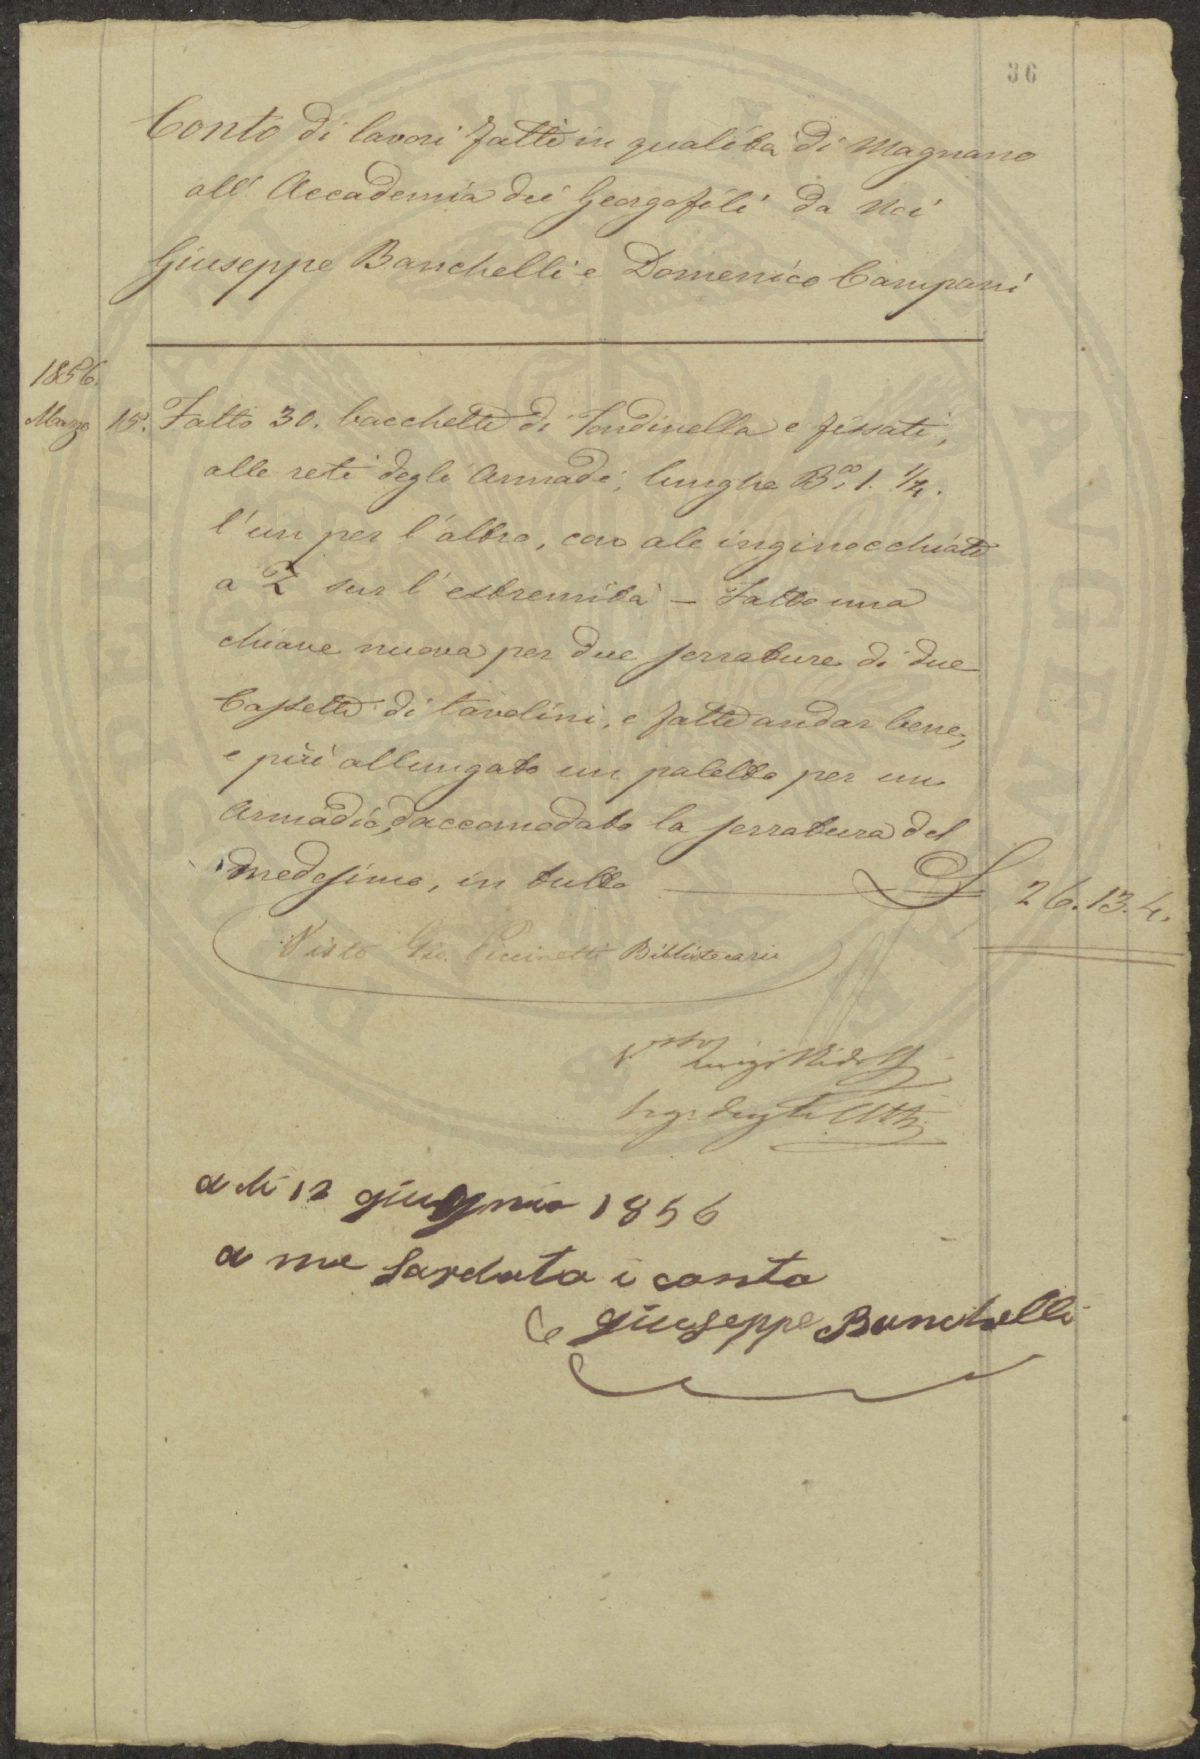 36
Conto di lavori fatti in qualità di Magnano
all' Accademia dei Georgofili da Noi
Giuseppe Banchelli e Domenico Campani
1856.
Marzo 15. Fatto 30. bacchette di Tondinella e fissati,
alle reti degli Armadi, lunghe B.a 1. 1/4.
l'un per l'altro, con ale inginocchiate
a Z sur l'estremità – Fatto una
chiave nuova per due serrature di due
Cassette di tavolini, e fatte andar bene,
e più allungato un paletto per un
Armadio, daccomodato la serratura del
medesimo, in tutto L 26.13.4.
Visto Gio. Piccinetti Bibliotecario
Visto Luigi Ridolfi
Seg. degli Atti
a di 12 giugnio 1856
a me Sardato i conto
Giuseppe Banchelli